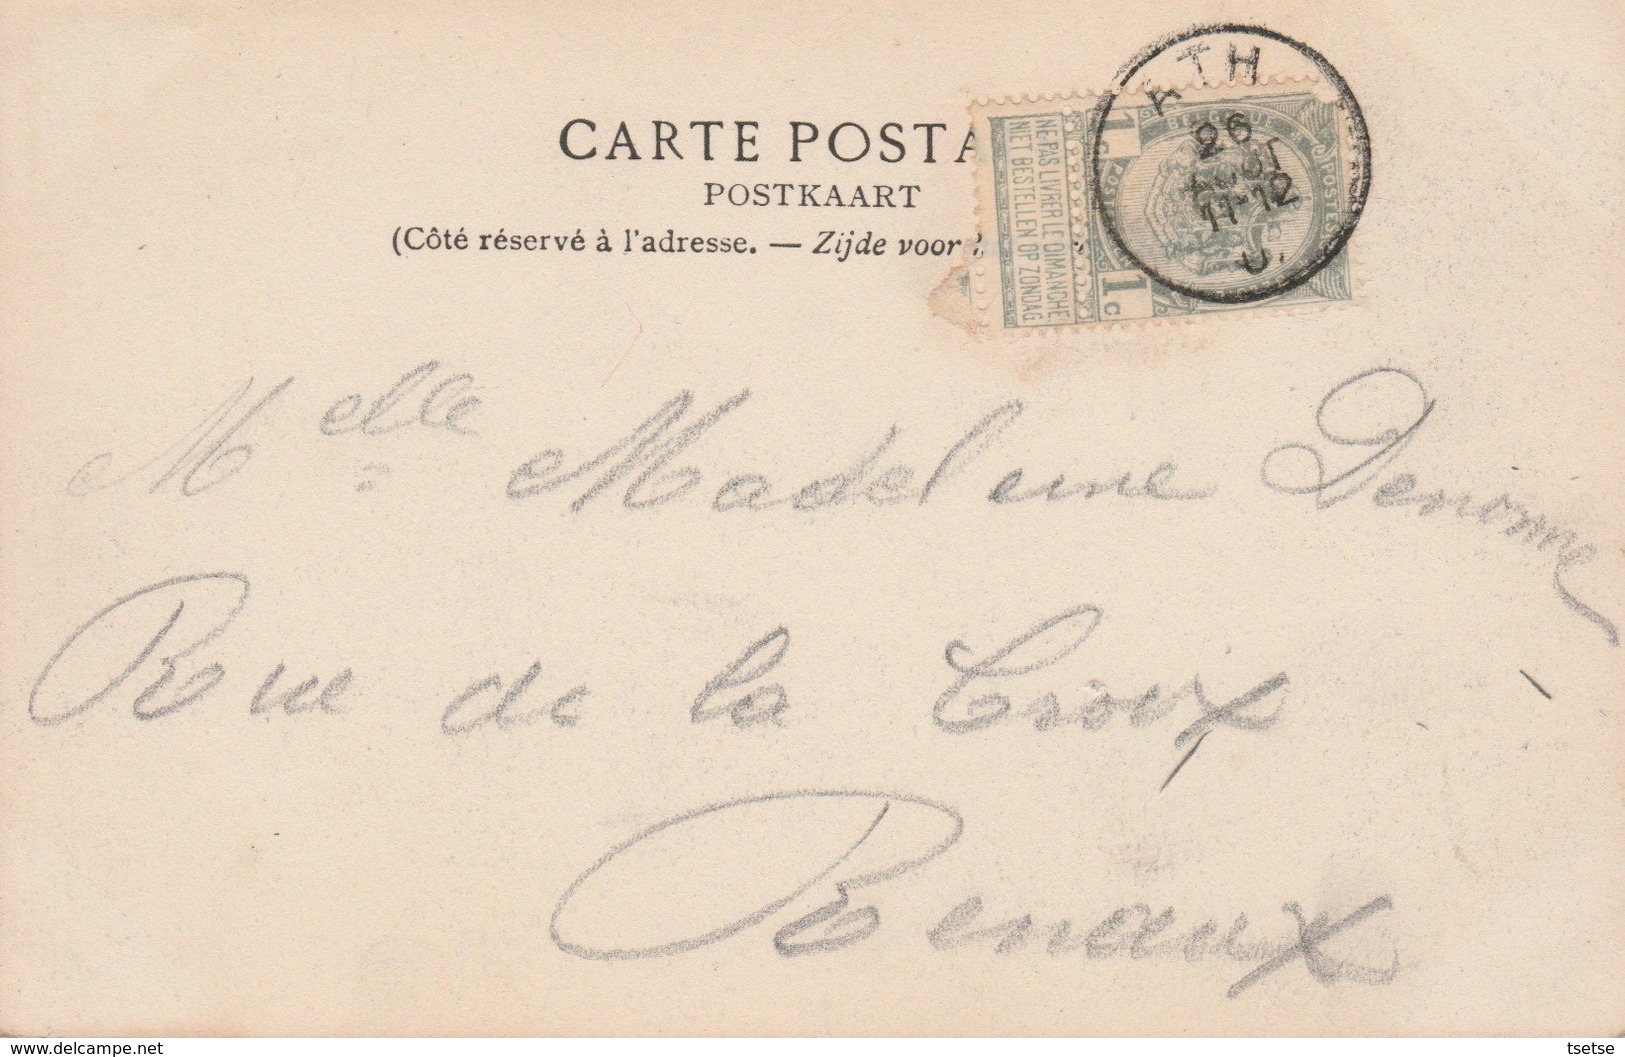 CARTE POSTA
POSTKAART
(Côté réservé à l'adresse. — Zijde voor
ATH
26
AOUT
11-12
BELGIQUE
POSTES
1c
1c
NE PAS LIVRER LE DIMANCHE
NIET BESTELLEN OP ZONDAG
Melle Madeleine Denonne
Rue de la Croix
Renaix
delcampe.net
tsetse